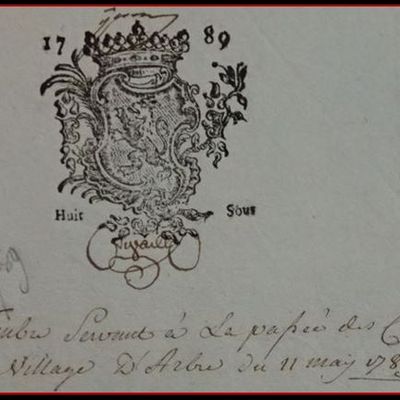 17 89
Huit Sous
Servant à La passée des
Village D'Arbre du 11 may 178